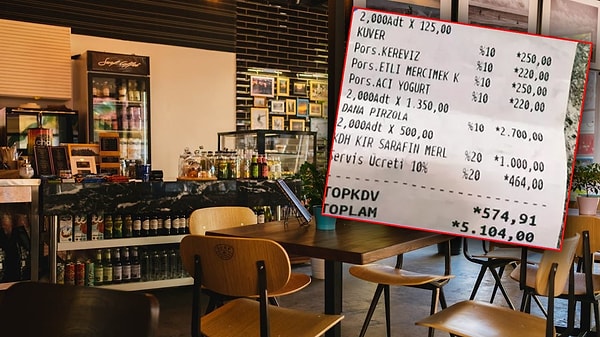 2,000Adt X 125,00
KUVER %10 *250,00
Pors.KEREVİZ %10 *220,00
Pors.ETLI MERCIMEK K %10 *250,00
Pors.ACI YOGURT %10 *220,00
2,000Adt X 1.350,00
DANA PIRZOLA %10 *2.700,00
2,000Adt X 500,00
KDH KIR SARAFIN MERL %20 *1.000,00
Servis Ücreti 10% %20 *464,00
TOPKDV *574,91
TOPLAM *5.104,00